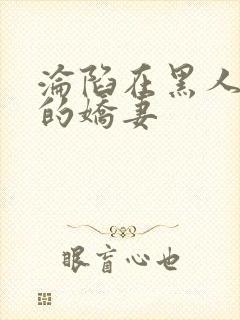 淪陷在黑人
的嬌妻
眼盲心也